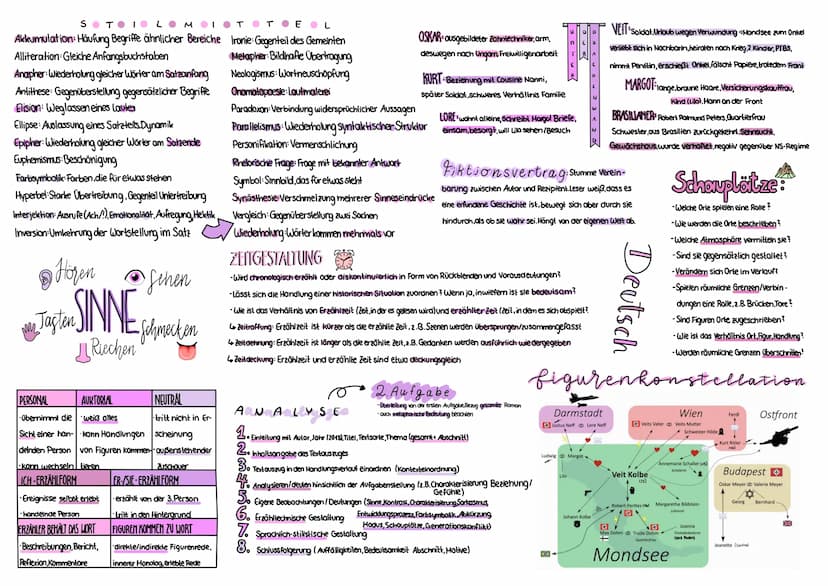 STILMITTEL
Akkumulation: Häufung Begriffe ähnlicher Bereiche
Alliteration: Gleiche Anfangsbuchstaben
Anapher: Wiederholung gleicher Wörter am Satzanfang
Antithese: Gegenüberstellung gegensätzlicher Begriffe
Elision: Weglassen eines Lautes
Ellipse: Auslassung eines Satzteils, Dynamik
Epipher: Wiederholung gleicher Wörter am Satzende
Euphemismus: Beschönigung
Farbsymbolik: Farben, die für etwas stehen
Hyperbel: Starke Übertreibung, Gegenteil Untertreibung
Interjektion: Ausrufe (Ach!), Emotionalität, Aufregung, Hektik
Inversion: Umkehrung der Wortstellung im Satz
Ironie: Gegenteil des Gemeinten
Metapher: Bildhafte Übertragung
Neologismus: Wortneuschöpfung
Onomatopoesie: Lautmalerei
Paradoxon: Verbindung widersprüchlicher Aussagen
Parallelismus: Wiederholung syntaktischer Struktur
Personifikation: Vermenschlichung
Rhetorische Frage: Frage mit bekannter Antwort
Symbol: Sinnbild, das für etwas steht
Synästhesie: Verschmelzung mehrerer Sinneseindrücke
Vergleich: Gegenüberstellung zwei Sachen
Wiederholung: Wörter kommen mehrmals vor
OSKAR: ausgebildeter Zahntechniker, arm,
deswegen nach Ungarn, Freiwilligenarbeit
KURT: Beziehung mit Cousine Nanni,
später Soldat, schweres Verhältnis Familie
LORE: wohnt alleine, schreibt Margot Briefe,
einsam, besorgt, will Lilo sehen/Besuch
UNTER
DER
DRACHENWAND
VEIT: Soldat, Urlaub wegen Verwundung → Mondsee zum Onkel
verliebt sich in Nachbarin, heiraten nach Krieg, 2 Kinder, PTBS,
nimmt Pervitin, erschießt Onkel, fälscht Papiere, trotzdem Front
MARGOT: lange, braune Haare, Versicherungskauffrau,
Kind (Lilo), Mann an der Front
BRASILIANER: Robert Raimund Perttes, Quartierfrau
Schwester, aus Brasilien zurückgekehrt, Sehnsucht,
Gewächshaus, wurde verhaftet, negativ gegenüber NS-Regime
Fiktionsvertrag: Stumme Verein-
barung zwischen Autor und Rezipient. Leser weiß, dass es
eine erfundene Geschichte ist, bewegt sich aber durch sie
hindurch, als ob sie wahr sei. Hängt von der eigenen Welt ab.
Schauplätze:
- Welche Orte spielen eine Rolle?
- Wie werden die Orte beschrieben?
- Welche Atmosphäre vermitteln sie?
- Sind sie gegensätzlich gestaltet?
- Verändern sich Orte im Verlauf?
- Spielen räumliche Grenzen/Verbin-
dungen eine Rolle, z.B. Brücken, Tore?
- Sind Figuren Orte zugeschrieben?
- Wie ist das Verhältnis Ort, Figur, Handlung?
- Werden räumliche Grenzen überschritten?
Deutsch
ZEITGESTALTUNG
- Wird chronologisch erzählt oder diskontinuierlich in Form von Rückblenden und Vorausdeutungen?
- Lässt sich die Handlung einer historischen Situation zuordnen? Wenn ja, inwiefern ist sie bedeutsam?
- Wie ist das Verhältnis von Erzählzeit (Zeit, in der es gelesen wird) und erzählter Zeit (Zeit, in dem es sich abspielt?
↳ Zeitraffung: Erzählzeit ist kürzer als die erzählte Zeit, z.B. Szenen werden übersprungen/zusammengefasst
↳ Zeitdehnung: Erzählzeit ist länger als die erzählte Zeit, z.B. Gedanken werden ausführlich wiedergegeben
↳ Zeitdeckung: Erzählzeit und erzählte Zeit sind etwa deckungsgleich
Hören
Sehen
Tasten
SINNE
Schmecken
Riechen
PERSONAL
AUKTORIAL
NEUTRAL
- übernimmt die
Sicht einer han-
delnden Person
- kann wechseln
- weiß alles
- kann Handlungen
von Figuren kommen-
tieren
- tritt nicht in Er-
scheinung
- außenstehender
Zuschauer
ICH-ERZÄHLFORM
ER-/SIE-ERZÄHLFORM
- Ereignisse selbst erlebt
- handelnde Person
- erzählt von der 3. Person
- tritt in den Hintergrund
ERZÄHLER BEHÄLT DAS WORT
FIGUREN KOMMEN ZU WORT
- Beschreibungen, Bericht,
Reflexion, Kommentare
- direkte/indirekte Figurenrede,
innerer Monolog, erlebte Rede
ANALYSE
2. Aufgabe
1. Einleitung mit Autor, Jahr (2018), Titel, Textsorte, Thema (gesamt + Abschnitt)
2. Inhaltsangabe des Textauszuges
3. Textauszug in den Handlungsverlauf einordnen (Kontexteinordnung)
4. Analysieren/deuten hinsichtlich der Aufgabenstellung (z.B. Charakterisierung Beziehung/
Gefühle)
5. Eigene Beobachtungen/Deutungen
6. Erzähltechnische Gestaltung
7. Sprachlich-stilistische Gestaltung
8. Schlussfolgerung (Auffälligkeiten, Bedeutsamkeit Abschnitt, Motive)
figurenkonstellation
Darmstadt
Wien
Ostfront
Budapest
Mondsee
Veit Kolbe
Justus Neff
Lore Neff
Ludwig
Margot
Lilo
Veits Vater
Veits Mutter
Schwester Hilde
Ferdl
Kurt Ritler
Annemarie Schaller
Oskar Meyer
Valerie Meyer
Georg
Bernhard
Jeanette
Johann Kolbe
Margarete Bildstein
Max Dohm
Trude Dohm